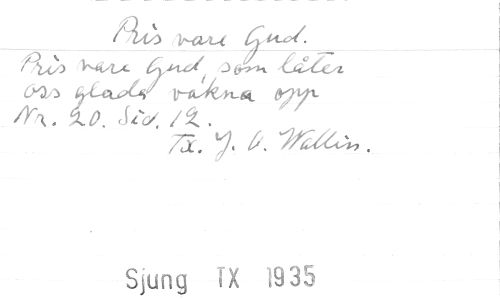 Pris vare Gud.
Pris vare Gud, som låter
oss glada vakna opp
Nr. 20. Sid. 12.
Tx. J. O. Wallin.
Sjung TX 1935